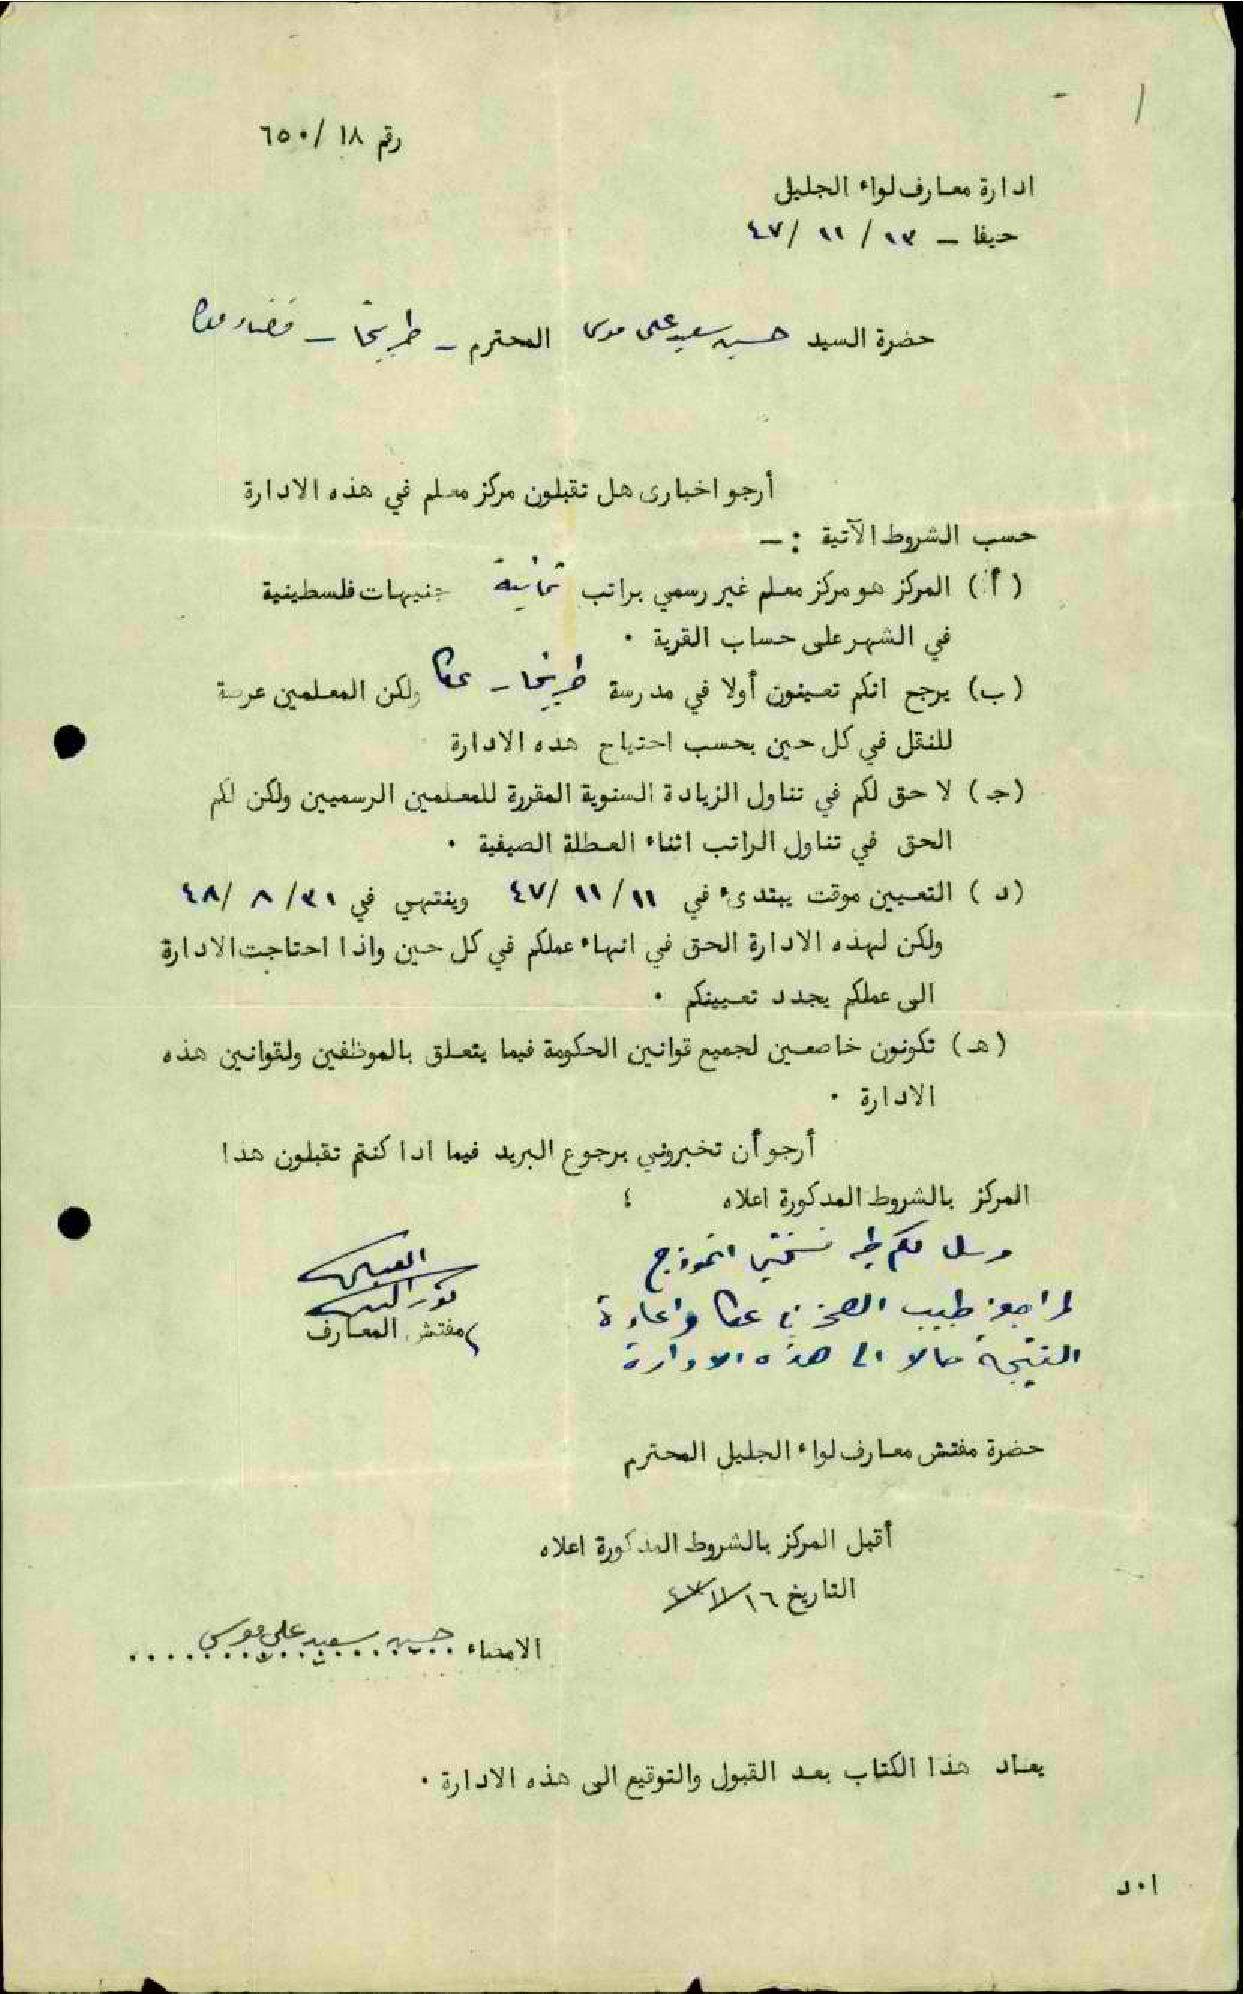 رقم ١٨ /٦٥٠
ادارة معارف لواء الجليل
حيفا – ١٣ / ١١ /٤٧
حضرة السيد حسين سعيد علي موسى المحترم – طربيخا – قضاء عكا
أرجو اخبارى هل تقبلون مركز معلم في هذه الادارة
حسب الشروط الآتية : –
(أ) المركز هو مركز معلم غير رسمي براتب ثمانية جنيهات فلسطينية
في الشهر على حساب القرية ٠
(ب) يرجح انكم تعينون أولا في مدرسة طربيخا – عكا ولكن المعلمين عرضة
للنقل في كل حين بحسب احتياج هذه الادارة
(جـ) لا حق لكم في تناول الزيادة السنوية المقررة للمعلمين الرسميين ولكن لكم
الحق في تناول الراتب اثناء العطلة الصيفية ٠
(د) التعيين موقت يبتدىء في ١١ /١١ /٤٧ وينتهي في ٣١ /٨ /٤٨
ولكن لهذه الادارة الحق في انهاء عملكم في كل حين واذا احتاجت الادارة
الى عملكم يجدد تعيينكم ٠
(هـ) تكونون خاضعين لجميع قوانين الحكومة فيما يتعلق بالموظفين ولقوانين هذه
الادارة ٠
أرجو أن تخبروني برجوع البريد فيما اذا كنتم تقبلون هذا
المركز بالشروط المذكورة اعلاه ؛
مرسل لكم طيه نسختي انموذج
لمراجعة طبيب الصحة في عكا واعادة
النتيجة حالا الى هذه الادارة
مفتش المعارف
حضرة مفتش معارف لواء الجليل المحترم
أقبل المركز بالشروط المذكورة اعلاه
التاريخ ١٦/١١/٤٧
الامضاء حسين سعيد علي موسى
يعاد هذا الكتاب بعد القبول والتوقيع الى هذه الادارة ٠
ا٠د